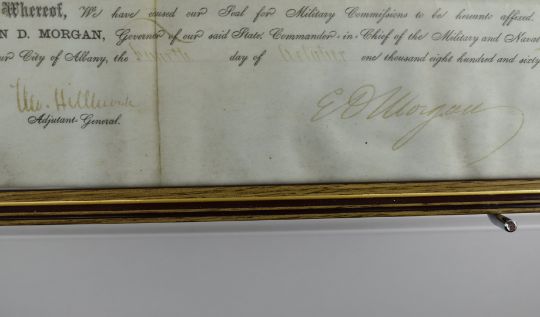 Whereof, We have caused our Seal for Military Commissions to be hereunto affixed.
N D. MORGAN, Governor of our said State, Commander-in-Chief of the Military and Naval
our City of Albany, the day of October one thousand eight hundred and sixty
Adjutant-General.
E D Morgan